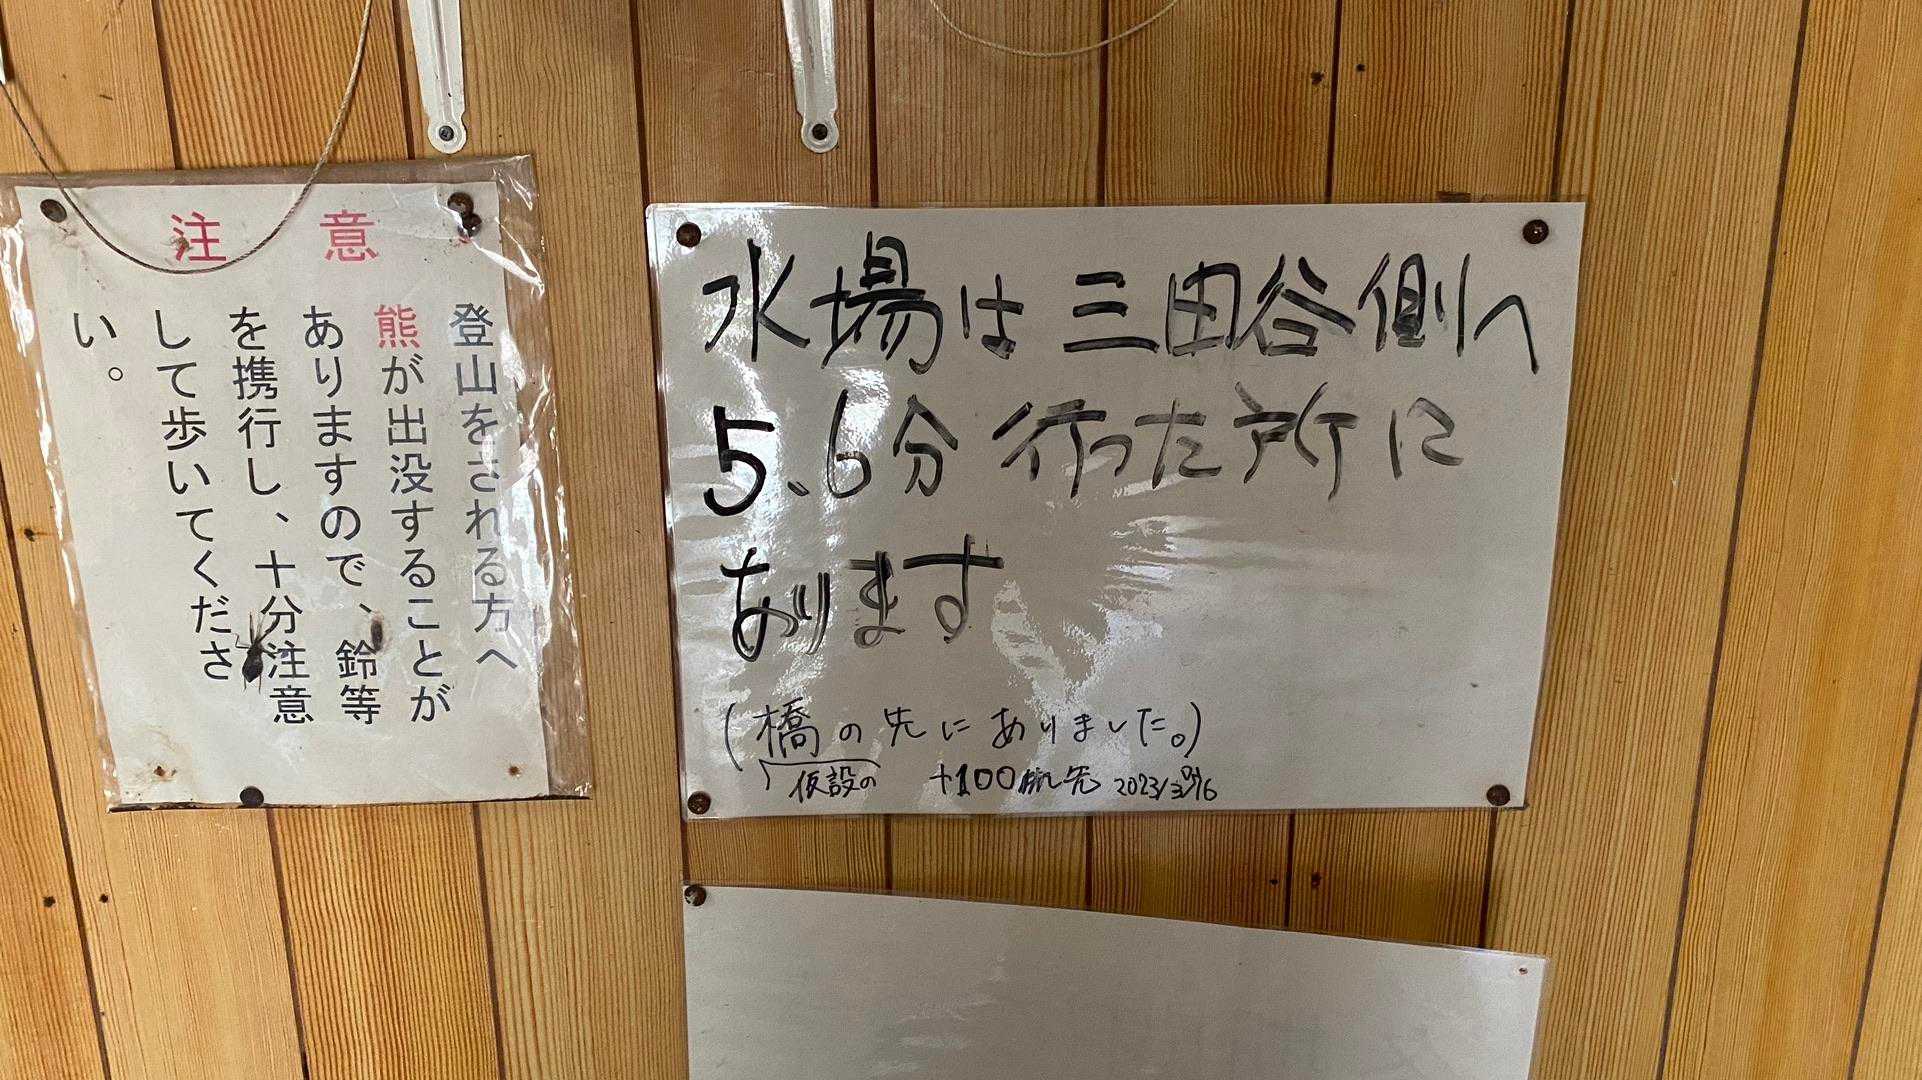 注意
登山をされる方へ
熊が出没することが
ありますので、鈴等
を携行し、十分注意
して歩いてくださ
い。
水場は三田谷側へ
5、6分行った所に
あります
(橋の先にありました。)
仮設の +100m先 2023/3/16